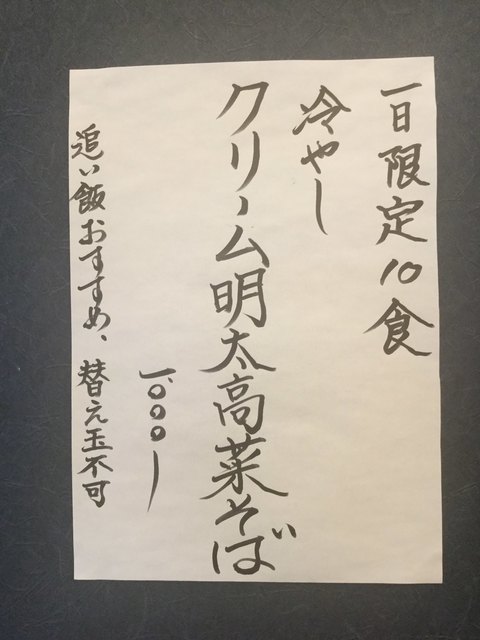 一日限定10食
冷やし
クリーム明太高菜そば
一、〇〇〇ー
追い飯おすすめ、替え玉不可